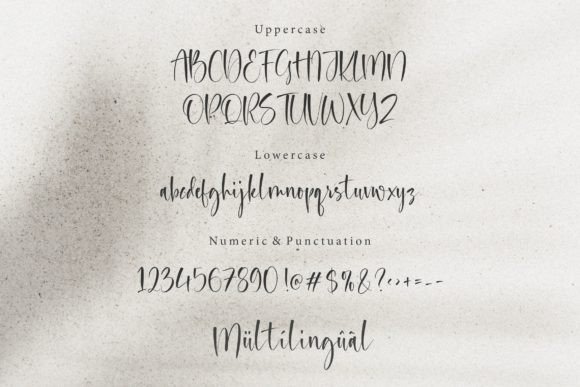 Uppercase
ABCDEFGHIJKLMN
OPQRSTUVWXYZ
Lowercase
abcdefghijklmnopqrstuvwxyz
Numeric & Punctuation
1234567890!@#$%&?<>+=--
Mültílingûâl